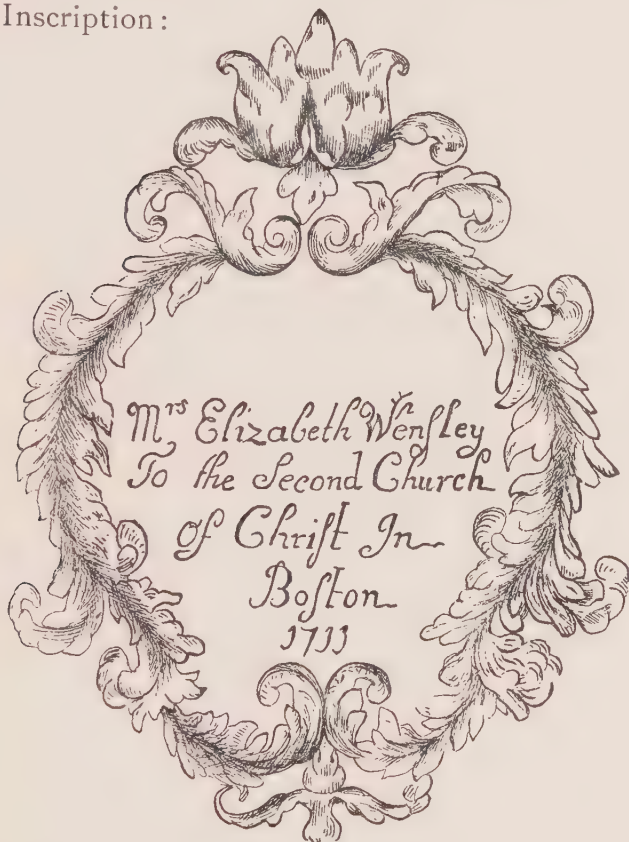 Inscription:
Mrs Elizabeth Wenſley
To the Second Church
of Chriſt In
Boſton
1711